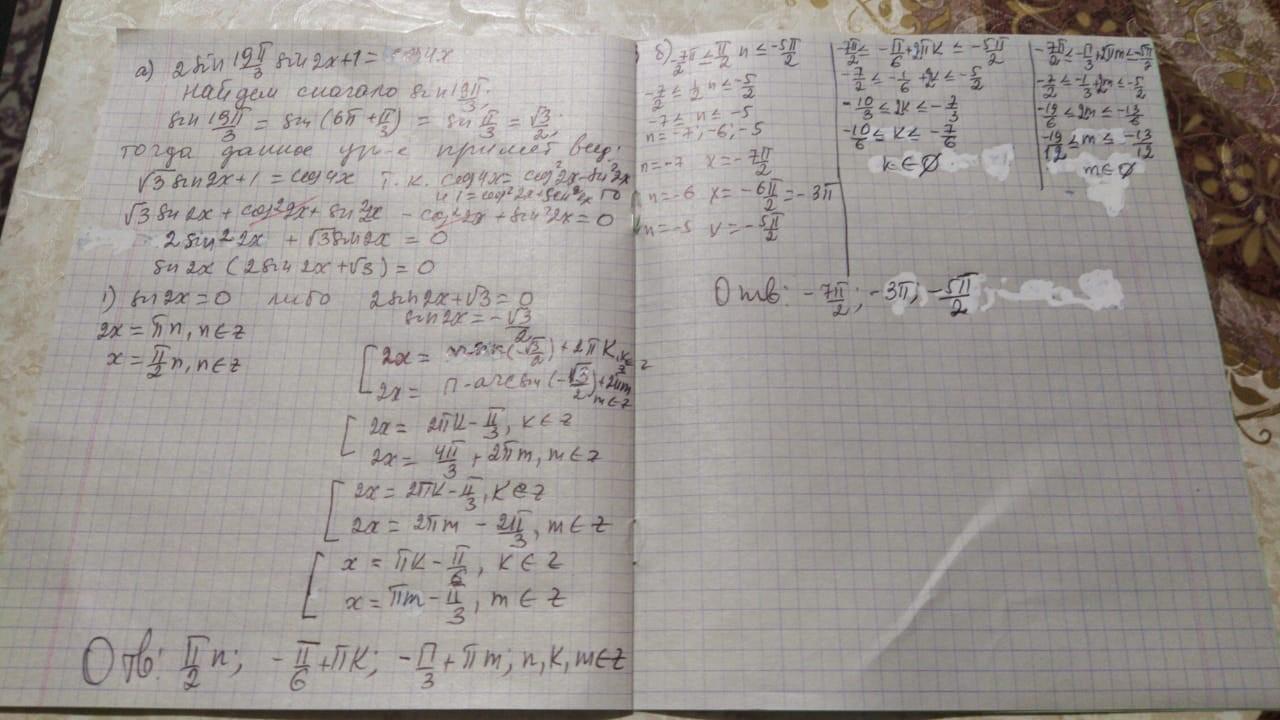 а) 2 sin 19π/3 sin 2x+1 = cos4x
Найдем сначало sin 19π/3;
sin 19π/3 = sin (6π + π/3) = sin π/3 = √3/2;
тогда данное ур-е примет вид:
√3 sin2x+1 = cos4x т.к. cos4x = cos²2x-sin²2x
и 1 = cos²2x+sin²2x то
√3 sin 2x + cos²2x + sin²2x - cos²2x + sin²2x = 0
2 sin²2x + √3 sin2x = 0
sin 2x (2 sin 2x + √3) = 0
1) sin 2x = 0 либо 2 sin 2x + √3 = 0
sin 2x = -√3/2
2x = πn, n ∈ z
x = π/2 n, n ∈ z
[ 2x = arcsin(-√3/2) + 2πK, K ∈ z
2x = π - arcsin(-√3/2) + 2πm m ∈ z
[ 2x = 2πK - π/3, K ∈ z
2x = 4π/3 + 2πm, m ∈ z
[ 2x = 2πK - π/3, K ∈ z
2x = 2πm - 2π/3, m ∈ z
[ x = πK - π/6, K ∈ z
x = πm - π/3, m ∈ z
Отв: π/2 n; -π/6 + πK; -π/3 + πm; n, K, m ∈ z
б) -7π/2 ≤ π/2 n ≤ -5π/2
-7/2 ≤ 1/2 n ≤ -5/2
-7 ≤ n ≤ -5
n = -7; -6; -5
n = -7 x = -7π/2
n = -6 x = -6π/2 = -3π
n = -5 x = -5π/2
-7π/2 ≤ -π/6 + 2πK ≤ -5π/2
-7/2 ≤ -1/6 + 2K ≤ -5/2
-10/3 ≤ 2K ≤ -7/3
-10/6 ≤ K ≤ -7/6
K ∈ ∅
-7π/2 ≤ -π/3 + 2πm ≤ -5π/2
-7/2 ≤ -1/3 + 2m ≤ -5/2
-19/6 ≤ 2m ≤ -13/6
-19/12 ≤ m ≤ -13/12
m ∈ ∅
Отв: -7π/2; -3π; -5π/2;